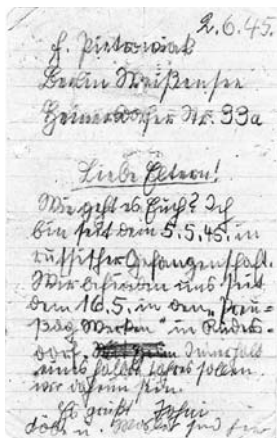 2.6.45.
F. Pietrowiak
Berlin Weißensee
Heinersdorfer Str. 33a
Liebe Eltern!
Wie geht es Euch? Ich
bin seit dem 5.5.45. in
russischer Gefangenschaft.
Wir befinden uns seit
dem 16.5. in den „Preu=
ßag Werken" in Rüders=
dorf. Innerhalb
eines halben Jahres sollen
wir daheim sein.
Es grüßt
u. sind hier